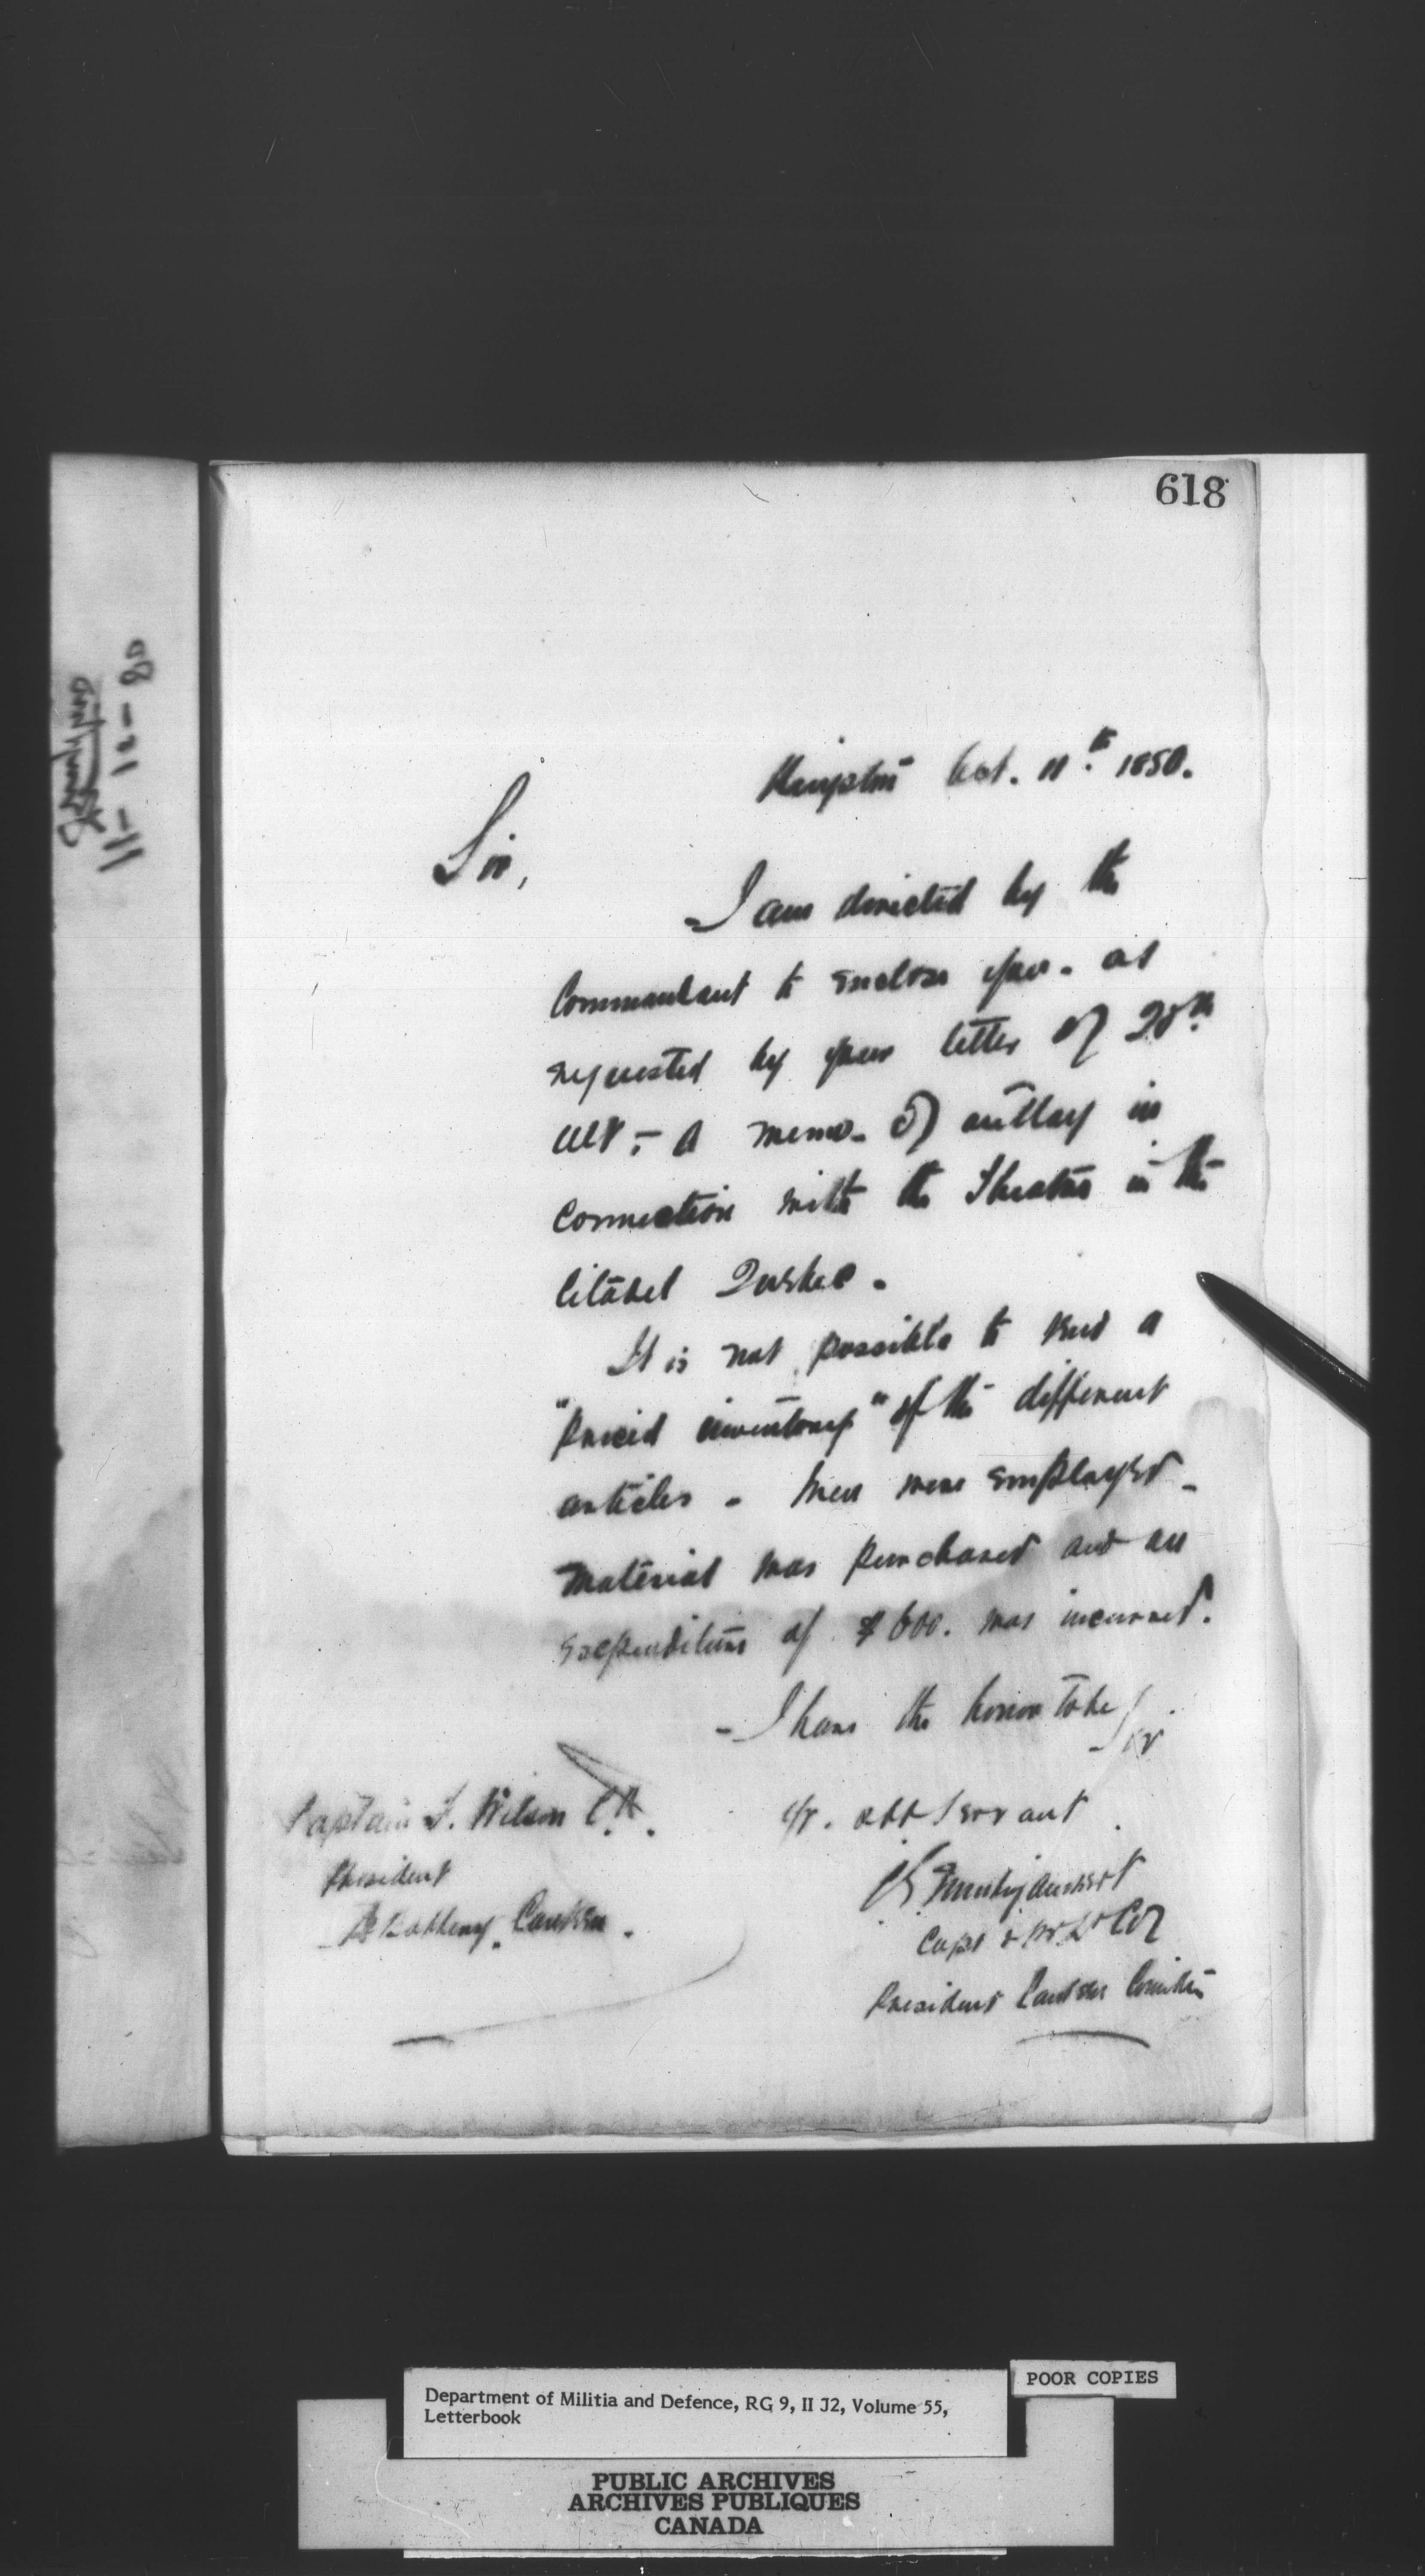 618
11-12-80
Kingston Oct. 11th 1880.
Sir,
I am directed by the
Commandant to enclose you - as
requested by your letter of 28th
ult - a memo. of outlay in
connection with the Theatre in the
Citadel Quebec.
It is not possible to send a
"priced inventory" of the different
articles - Men were employed -
material was purchased and an
expenditure of $600. was incurred.
I have the honor to be
Sir
yr. obt servant
Capt & Bt Lt Col
President Canteen Committee
Captain J. Wilson C.A.
President
A Battery Canteen.
Department of Militia and Defence, RG 9, II J2, Volume 55,
Letterbook
POOR COPIES
PUBLIC ARCHIVES
ARCHIVES PUBLIQUES
CANADA